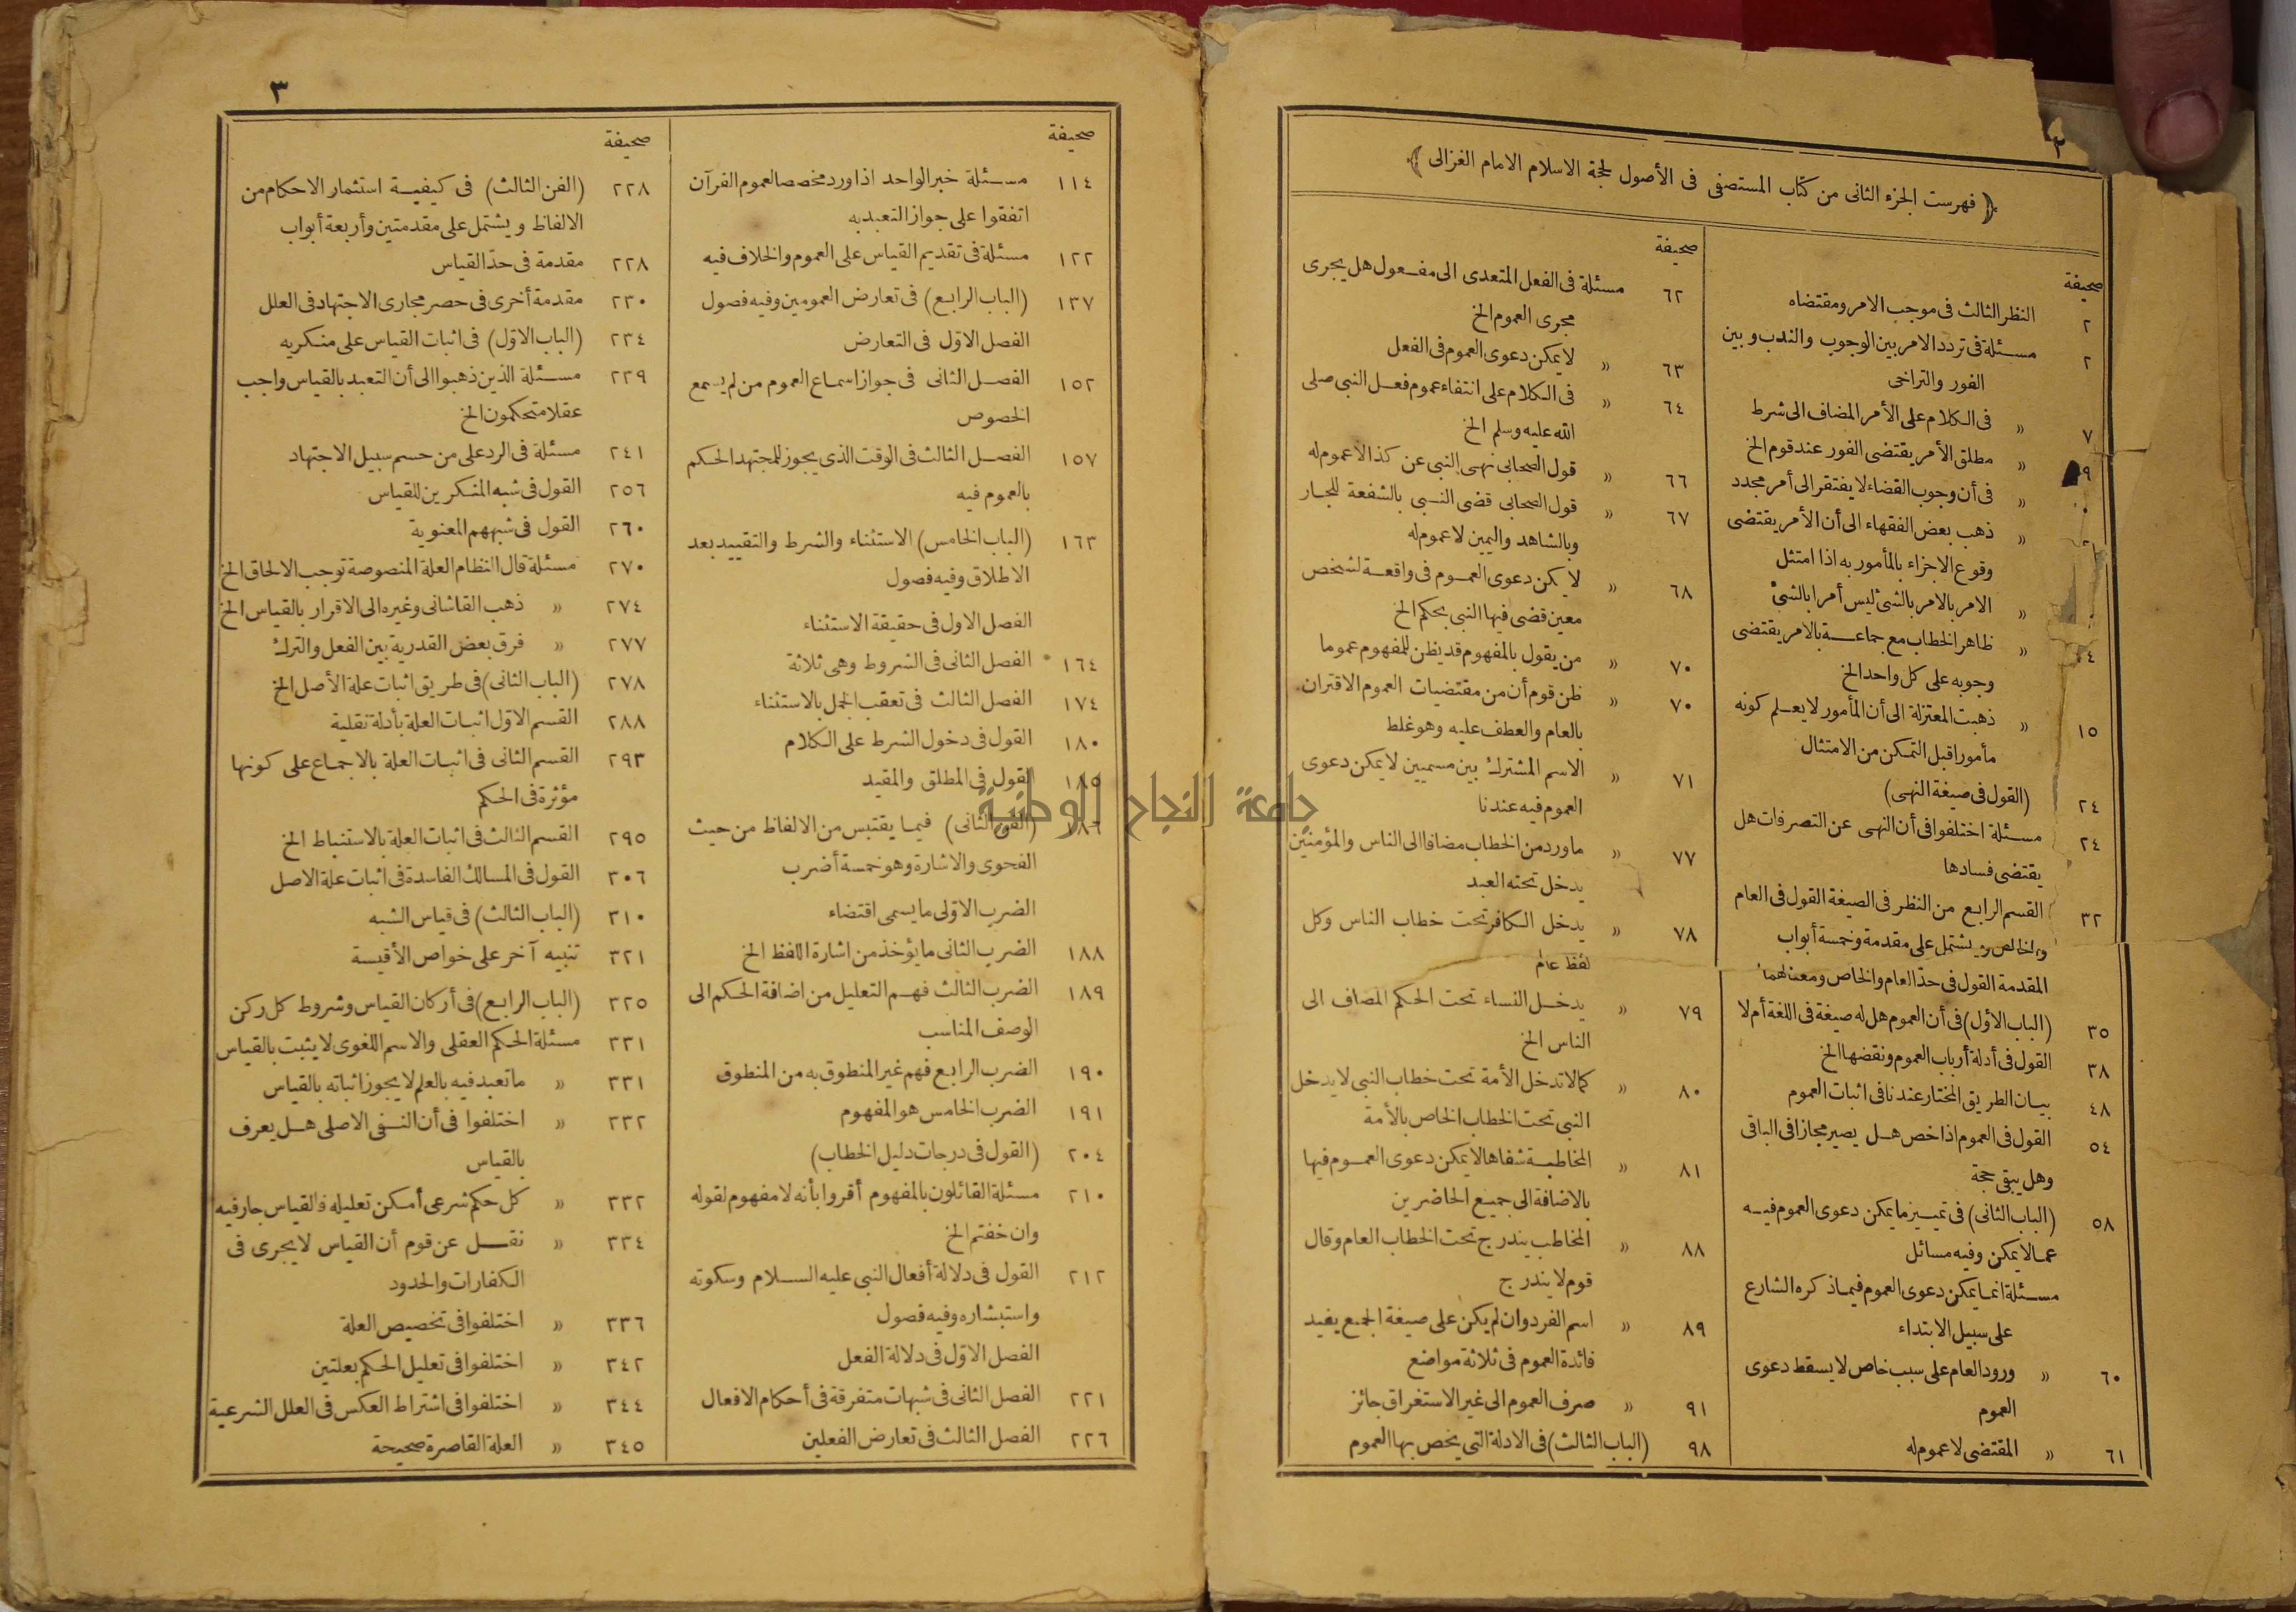 ٢
﴿ فهرست الجزء الثانى من كتاب المستصفى فى الأصول لحجة الاسلام الامام الغزالى ﴾
صحيفة
٢ النظر الثالث فى موجب الامر ومقتضاه
٢ مسئلة فى تردد الامر بين الوجوب والندب وبين
الفور والتراخى
٧ » فى الكلام على الأمر المضاف الى شرط
٩ » مطلق الأمر يقتضى الفور عند قوم الخ
» فى أن وجوب القضاء لا يفتقر الى أمر مجدد
» ذهب بعض الفقهاء الى أن الأمر يقتضى
وقوع الاجزاء بالمأمور به اذا امتثل
» الامر بالامر بالشئ ليس أمرا بالشئ
٤ » ظاهر الخطاب مع جماعة بالامر يقتضى
وجوبه على كل واحد الخ
١٥ » ذهبت المعتزلة الى أن المأمور لا يعلم كونه
مأمورا قبل التمكن من الامتثال
٢٤ (القول فى صيغة النهى)
٢٤ مسئلة اختلفوا فى أن النهى عن التصرفات هل
يقتضى فسادها
٣٢ القسم الرابع من النظر فى الصيغة القول فى العام
والخاص ويشتمل على مقدمة وخمسة أبواب
المقدمة القول فى حد العام والخاص ومعناهما
٣٥ (الباب الأول) فى أن العموم هل له صيغة فى اللغة أم لا
٣٨ القول فى أدلة أرباب العموم ونقضها الخ
٤٨ بيان الطريق المختار عندنا فى اثبات العموم
٥٤ القول فى العموم اذا خص هل يصير مجازا فى الباقى
وهل يبقى حجة
٥٨ (الباب الثانى) فى تمييز ما يمكن دعوى العموم فيه
عما لا يمكن وفيه مسائل
مسئلة انما يمكن دعوى العموم فيما ذكره الشارع
على سبيل الابتداء
٦٠ » ورود العام على سبب خاص لا يسقط دعوى
العموم
٦١ » المقتضى لا عموم له
صحيفة
٦٢ مسئلة فى الفعل المتعدى الى مفعول هل يجرى
مجرى العموم الخ
٦٣ » لا يمكن دعوى العموم فى الفعل
٦٤ » فى الكلام على انتفاء عموم فعل النبى صلى
الله عليه وسلم الخ
٦٦ » قول الصحابى نهى النبى عن كذا لا عموم له
٦٧ » قول الصحابى قضى النبى بالشفعة للجار
وبالشاهد واليمين لا عموم له
٦٨ » لا يمكن دعوى العموم فى واقعة لشخص
معين قضى فيها النبى بحكم الخ
٧٠ » من يقول بالمفهوم قد يظن للمفهوم عموما
٧٠ » ظن قوم أن من مقتضيات العموم الاقتران
بالعام والعطف عليه وهو غلط
٧١ » الاسم المشترك بين مسميين لا يمكن دعوى
العموم فيه عندنا
٧٧ » ما ورد من الخطاب مضافا الى الناس والمؤمنين
يدخل تحته العبد
٧٨ » يدخل الكافر تحت خطاب الناس وكل
لفظ عام
٧٩ » يدخل النساء تحت الحكم المضاف الى
الناس الخ
٨٠ » كما لا تدخل الأمة تحت خطاب النبى لا يدخل
النبى تحت الخطاب الخاص بالأمة
٨١ » المخاطبة شفاها لا يمكن دعوى العموم فيها
بالاضافة الى جميع الحاضرين
٨٨ » المخاطب يندرج تحت الخطاب العام وقال
قوم لا يندرج
٨٩ » اسم الفرد وان لم يكن على صيغة الجمع يفيد
فائدة العموم فى ثلاثة مواضع
٩١ » صرف العموم الى غير الاستغراق جائز
٩٨ (الباب الثالث) فى الادلة التى يخص بها العموم
٣
صحيفة
١١٤ مسئلة خبر الواحد اذا ورد مخصصا لعموم القرآن
اتفقوا على جواز التعبد به
١٢٢ مسئلة فى تقديم القياس على العموم والخلاف فيه
١٣٧ (الباب الرابع) فى تعارض العمومين وفيه فصول
الفصل الاول فى التعارض
١٥٢ الفصل الثانى فى جواز اسماع العموم من لم يسمع
الخصوص
١٥٧ الفصل الثالث فى الوقت الذى يجوز للمجتهد الحكم
بالعموم فيه
١٦٣ (الباب الخامس) الاستثناء والشرط والتقييد بعد
الاطلاق وفيه فصول
الفصل الاول فى حقيقة الاستثناء
١٦٤ الفصل الثانى فى الشروط وهى ثلاثة
١٧٤ الفصل الثالث فى تعقب الجمل بالاستثناء
١٨٠ القول فى دخول الشرط على الكلام
١٨٥ القول فى المطلق والمقيد
١٨٦ (الفن الثانى) فيما يقتبس من الالفاظ من حيث
الفحوى والاشارة وهو خمسة أضرب
الضرب الاولى ما يسمى اقتضاء
١٨٨ الضرب الثانى ما يؤخذ من اشارة اللفظ الخ
١٨٩ الضرب الثالث فهم التعليل من اضافة الحكم الى
الوصف المناسب
١٩٠ الضرب الرابع فهم غير المنطوق به من المنطوق
١٩١ الضرب الخامس هو المفهوم
٢٠٤ (القول فى درجات دليل الخطاب)
٢١٠ مسئلة القائلون بالمفهوم أقروا بأنه لا مفهوم لقوله
وان خفتم الخ
٢١٢ القول فى دلالة أفعال النبى عليه السلام وسكوته
واستبشاره وفيه فصول
الفصل الاول فى دلالة الفعل
٢٢١ الفصل الثانى فى شبهات متفرقة فى أحكام الافعال
٢٢٦ الفصل الثالث فى تعارض الفعلين
صحيفة
٢٢٨ (الفن الثالث) فى كيفية استثمار الاحكام من
الالفاظ ويشتمل على مقدمتين وأربعة أبواب
٢٢٨ مقدمة فى حد القياس
٢٣٠ مقدمة أخرى فى حصر مجارى الاجتهاد فى العلل
٢٣٤ (الباب الاول) فى اثبات القياس على منكريه
٢٣٩ مسئلة الذين ذهبوا الى أن التعبد بالقياس واجب
عقلا متحكمون الخ
٢٤١ مسئلة فى الرد على من حسم سبيل الاجتهاد
٢٥٦ القول فى شبه المنكرين للقياس
٢٦٠ القول فى شبههم المعنوية
٢٧٠ مسئلة قال النظام العلة المنصوصة توجب الالحاق الخ
٢٧٤ » ذهب القاشانى وغيره الى الاقرار بالقياس الخ
٢٧٧ » فرق بعض القدرية بين الفعل والترك
٢٧٨ (الباب الثانى) فى طريق اثبات علة الأصل الخ
٢٨٨ القسم الاول اثبات العلة بأدلة نقلية
٢٩٣ القسم الثانى فى اثبات العلة بالاجماع على كونها
مؤثرة فى الحكم
٢٩٥ القسم الثالث فى اثبات العلة بالاستنباط الخ
٣٠٦ القول فى المسالك الفاسدة فى اثبات علة الاصل
٣١٠ (الباب الثالث) فى قياس الشبه
٣٢١ تنبيه آخر على خواص الأقيسة
٣٢٥ (الباب الرابع) فى أركان القياس وشروط كل ركن
٣٣١ مسئلة الحكم العقلى والاسم اللغوى لا يثبت بالقياس
٣٣١ » ما تعبد فيه بالعلم لا يجوز اثباته بالقياس
٣٣٢ » اختلفوا فى أن النفى الاصلى هل يعرف
بالقياس
٣٣٢ » كل حكم شرعى أمكن تعليله فالقياس جار فيه
٣٣٤ » نقل عن قوم أن القياس لا يجرى فى
الكفارات والحدود
٣٣٦ » اختلفوا فى تخصيص العلة
٣٤٢ » اختلفوا فى تعليل الحكم بعلتين
٣٤٤ » اختلفوا فى اشتراط العكس فى العلل الشرعية
٣٤٥ » العلة القاصرة صحيحة
جامعة النجاح الوطنية